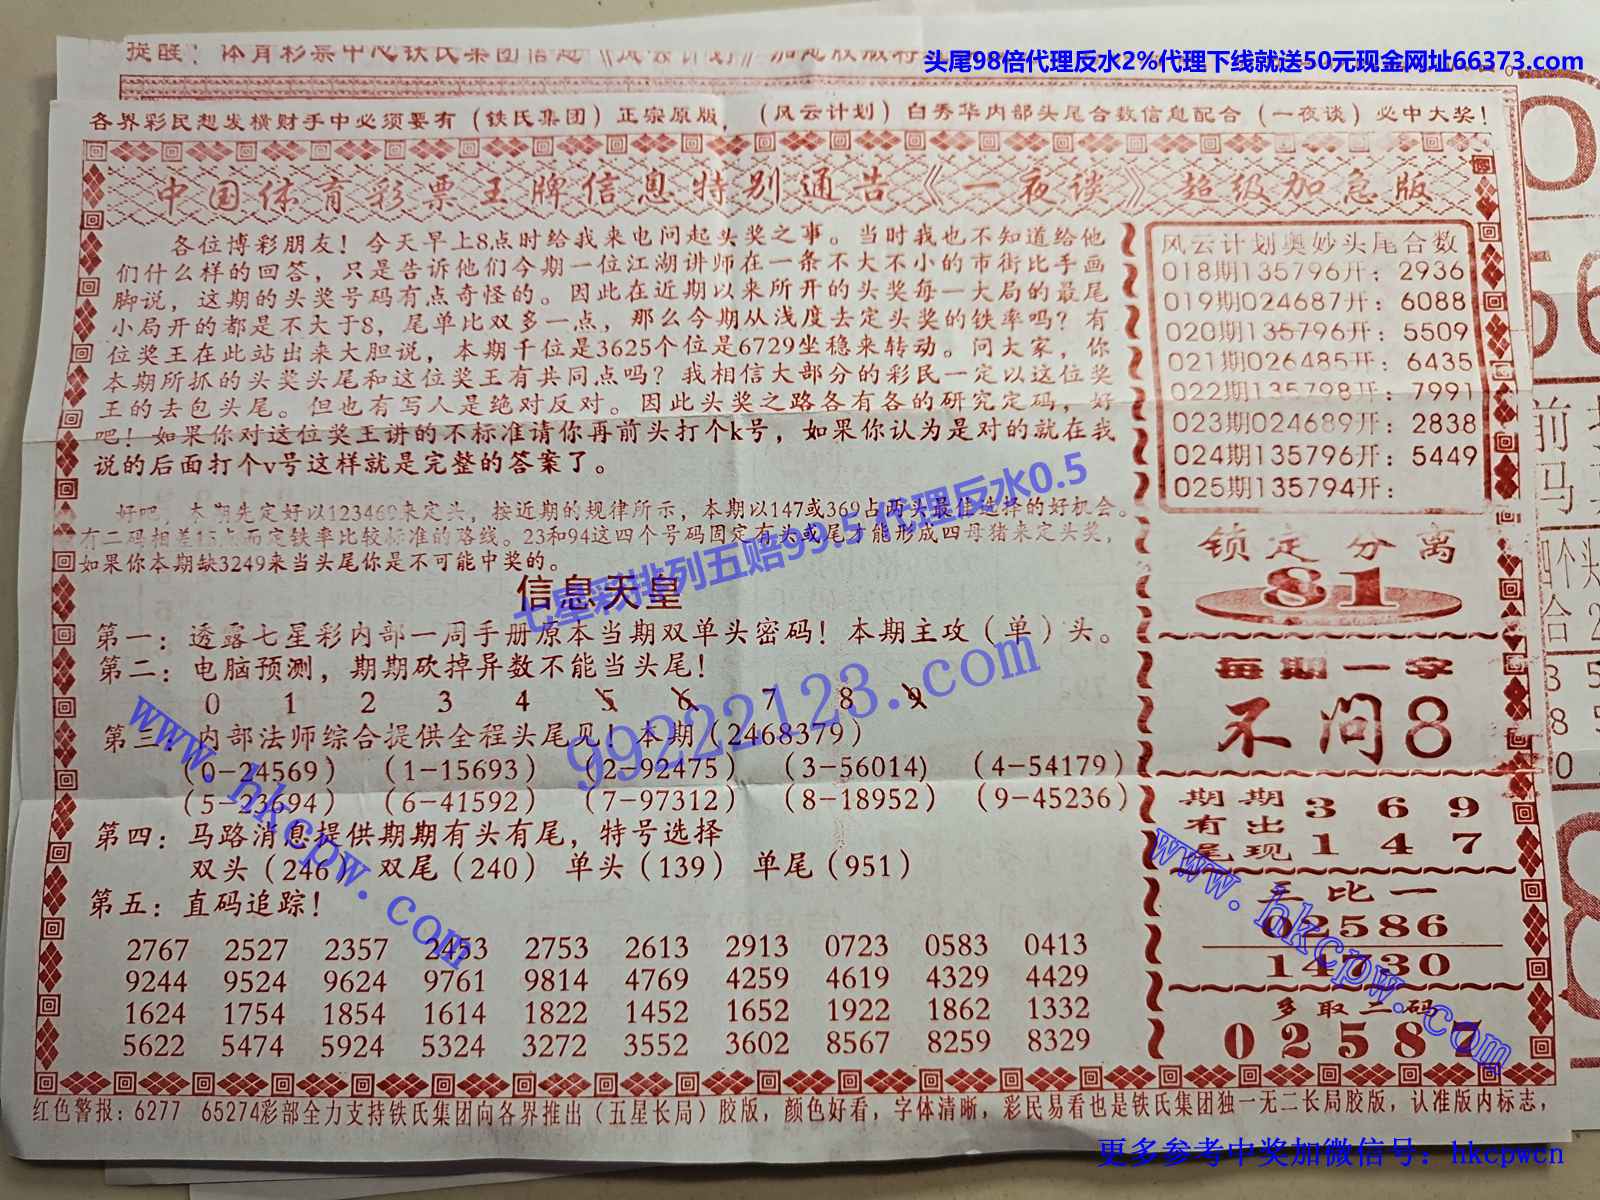 头尾98倍代理反水2%代理下线就送50元现金网址66373.com
提醒：体育彩票中心铁氏集团信息《风云计划》加急胶版
各界彩民想发横财手中必须要有（铁氏集团）正宗原版，（风云计划）白秀华内部头尾合数信息配合（一夜谈）必中大奖！
中国体育彩票王牌信息特别通告《一夜谈》超级加急版
各位博彩朋友！今天早上8点时给我来电问起头奖之事。当时我也不知道给他
们什么样的回答，只是告诉他们今期一位江湖讲师在一条不大不小的市街比手画
脚说，这期的头奖号码有点奇怪的。因此在近期以来所开的头奖每一大局的最尾
小局开的都是不大于8，尾单比双多一点，那么今期从浅度去定头奖的铁率吗？有
位奖王在此站出来大胆说，本期千位是3625个位是6729坐稳来转动。问大家，你
本期所抓的头奖头尾和这位奖王有共同点吗？我相信大部分的彩民一定以这位奖
王的去包头尾。但也有写人是绝对反对。因此头奖之路各有各的研究定码，好
吧！如果你对这位奖王讲的不标准请你再前头打个k号，如果你认为是对的就在我
说的后面打个v号这样就是完整的答案了。
好吧，本期先定好以123469来定头，按近期的规律所示，本期以147或369占两头最佳选择的好机会。
有二码相差15点而定铁率比较标准的路线。23和94这四个号码固定有头或尾才能形成四母猪来定头奖，
如果你本期缺3249来当头尾你是不可能中奖的。
信息天皇
七星彩排列五赔99.5 代理反水0.5
第一：透露七星彩内部一周手册原本当期双单头密码！本期主攻（单）头。
第二：电脑预测，期期砍掉异数不能当头尾！
0 1 2 3 4 5 6 7 8 9
第三：内部法师综合提供全程头尾见！本期（2468379）
（0-24569）（1-15693）（2-92475）（3-56014）（4-54179）
（5-23694）（6-41592）（7-97312）（8-18952）（9-45236）
第四：马路消息提供期期有头有尾，特号选择
双头（246）双尾（240）单头（139）单尾（951）
第五：直码追踪！
2767 2527 2357 2453 2753 2613 2913 0723 0583 0413
9244 9524 9624 9761 9814 4769 4259 4619 4329 4429
1624 1754 1854 1614 1822 1452 1652 1922 1862 1332
5622 5474 5924 5324 3272 3552 3602 8567 8259 8329
风云计划奥妙头尾合数
018期135796开：2936
019期024687开：6088
020期135796开：5509
021期026485开：6435
022期135798开：7991
023期024689开：2838
024期135796开：5449
025期135794开：
锁定分离
81
每期一字
不问8
期期 3 6 9
有出
尾现 1 4 7
三比一
02586
14730
多取二码
02587
99222123.com
www.hkcpw.com
www.hkcpw.com
红色警报：6277 65274彩部全力支持铁氏集团向各界推出（五星长局）胶版，颜色好看，字体清晰，彩民易看也是铁氏集团独一无二长局胶版，认准版内标志，
更多参考中奖加微信号：hkcpwcn
前
马
四个头
合2
3 5
8 5